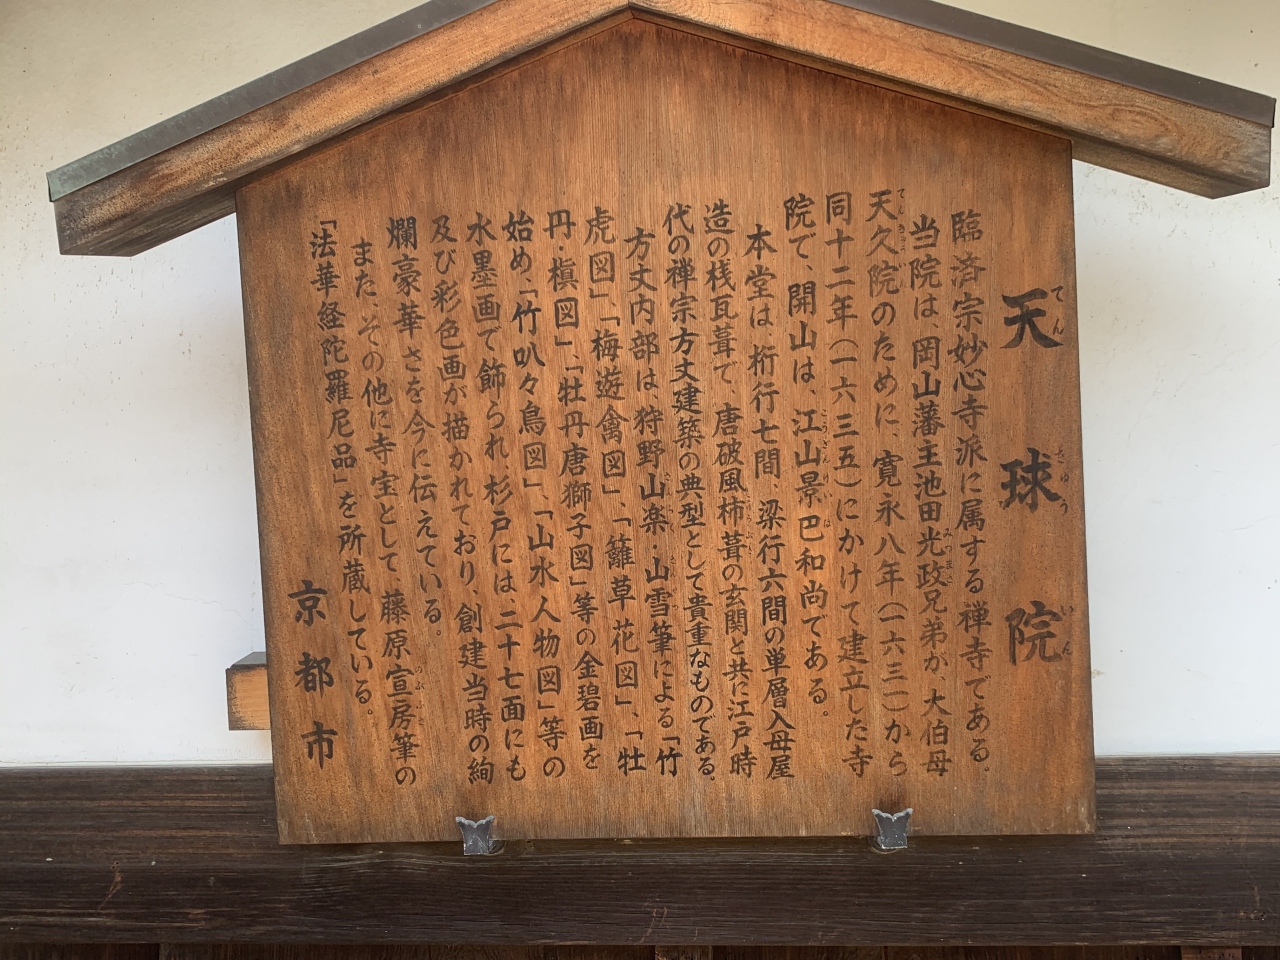 天球院
臨済宗妙心寺派に属する禅寺である。
当院は、岡山藩主池田光政兄弟が、大伯母
天久院のために、寛永八年(一六三一)から
同十二年(一六三五)にかけて建立した寺
院で、開山は、江山景巴和尚である。
本堂は、桁行七間、梁行六間の単層入母屋
造の桟瓦葺で、唐破風柿葺の玄関と共に江戸時
代の禅宗方丈建築の典型として貴重なものである。
方丈内部は、狩野山楽・山雪筆による「竹
虎図」、「梅遊禽図」、「籬草花図」、「牡
丹・槇図」、「牡丹唐獅子図」等の金碧画を
始め、「竹叭々鳥図」、「山水人物図」等の
水墨画で飾られ、杉戸には、二十七面にも
及び彩色画が描かれており、創建当時の絢
爛豪華さを今に伝えている。
また、その他に寺宝として、藤原宣房筆の
「法華経陀羅尼品」を所蔵している。
京都市